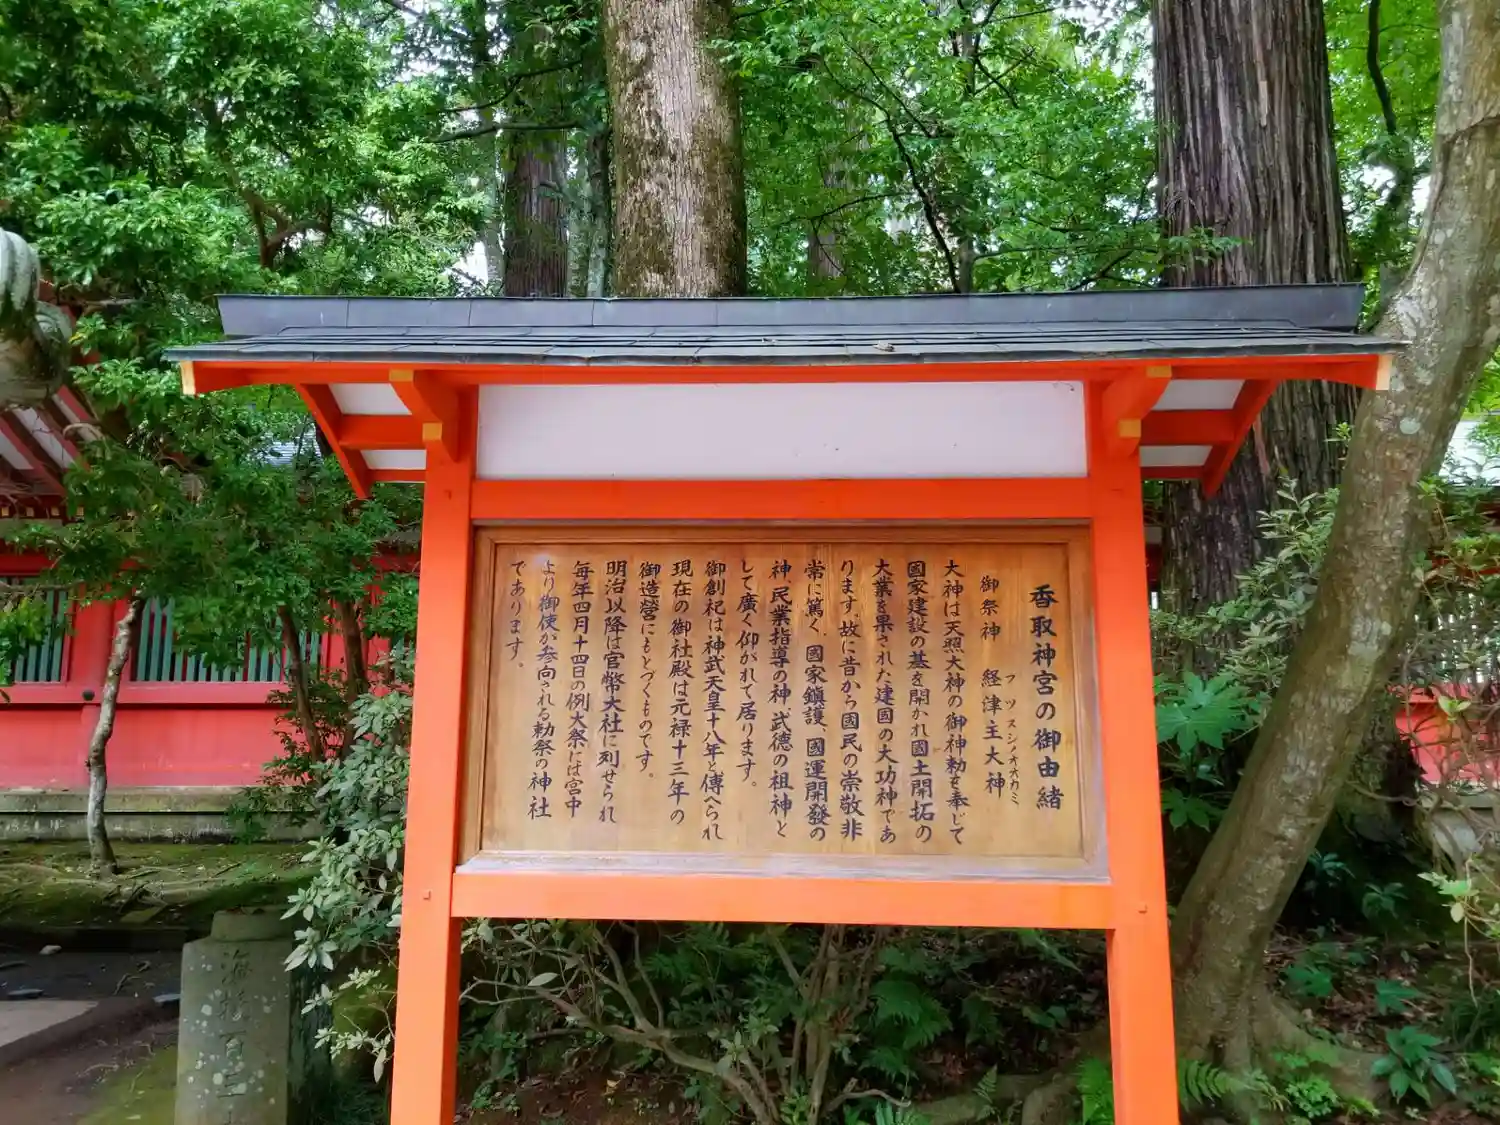 香取神宮の御由緒
御祭神 経津主大神
フツヌシノオオカミ
大神は天照大神の御神勅を奉じて
國家建設の基を開かれ國土開拓の
大業を果された建国の大功神であ
ります。故に昔から國民の崇敬非
常に篤く、國家鎮護、國運開發の
神、民業指導の神、武徳の祖神と
して廣く仰がれて居ります。
御創祀は神武天皇十八年と傳へられ
現在の御社殿は元禄十三年の
御造營にもとづくものです。
明治以降は官幣大社に列せられ
毎年四月十四日の例大祭には宮中
より御使が参向される勅祭の神社
であります。